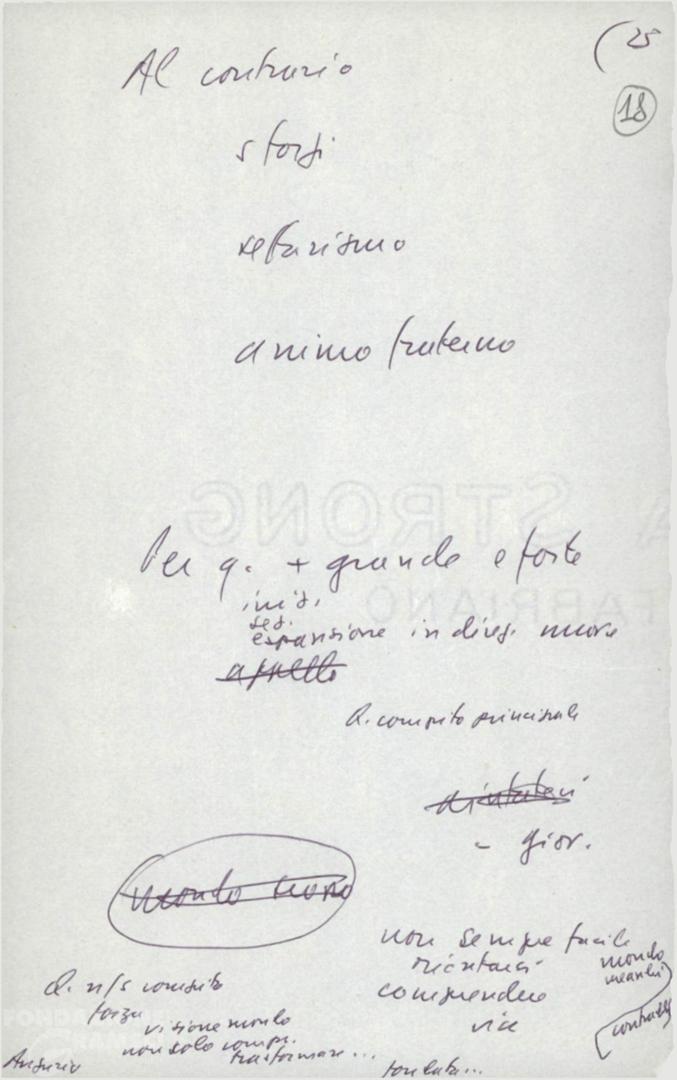 (25
18
Al contrario
sforzi
settarismo
animo fraterno
Per q. + grande e forte
iniz.
sez.
espansione in direz. nuove
appello
Q. compito principale
aiutateci
- gior.
mondo nuovo
non sempre facile
orientarci
comprendere
vie
mondo
contradd
Q. n/s compito
forza
visione mondo
non solo compr.
trasformare...
Augurio